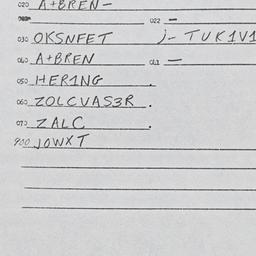 020 A+BREN-
022 -
030 OKSNFET j- TUK1V1
040 A+BREN -
050 HER1NG
060 ZOLCVAS3R.
070 ZALC.
900 JOWXT